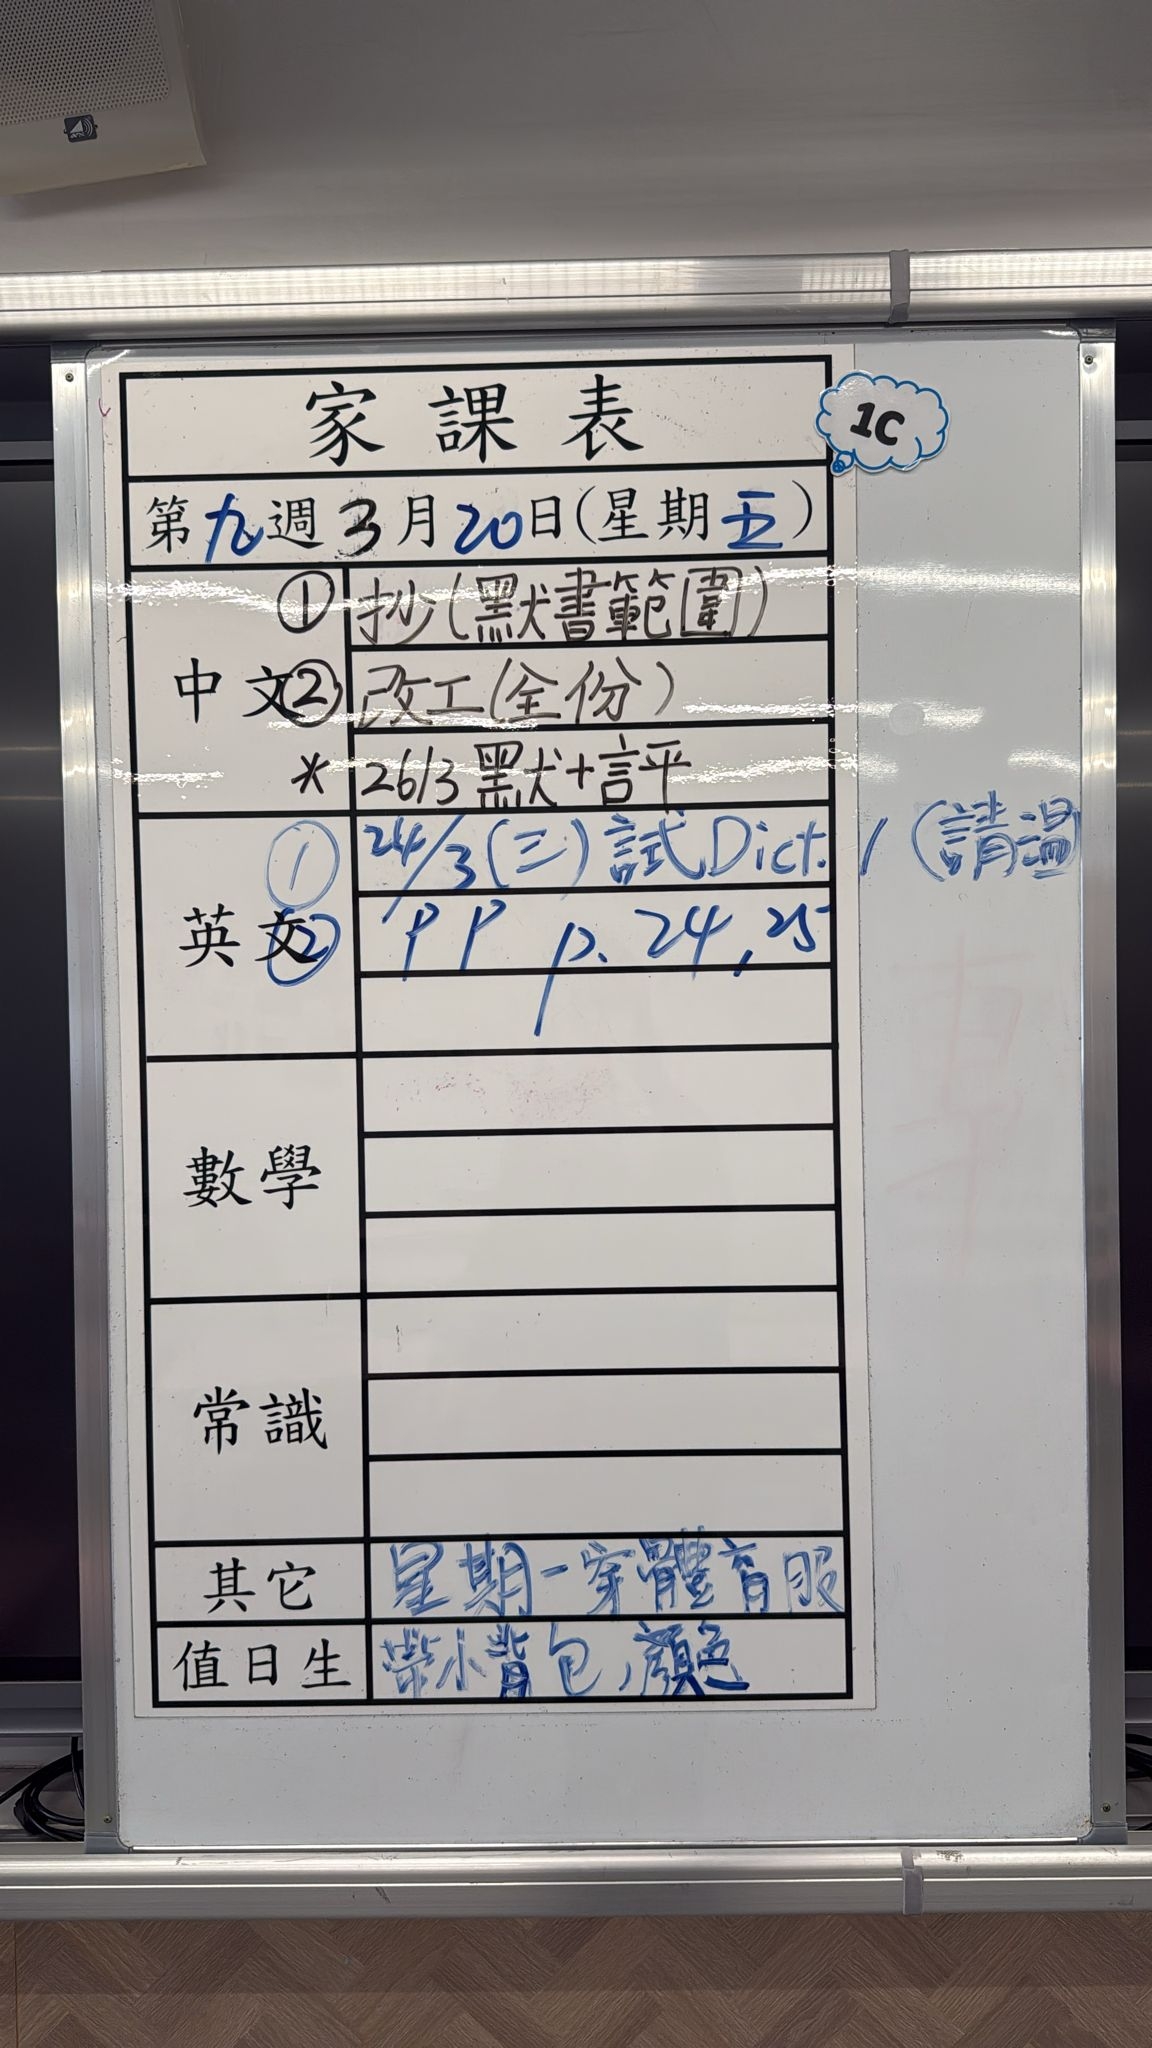 家課表
1C
第九週3月20日(星期五)
中文
① 抄(默書範圍)
② 改工(全份)
* 26/3 默+評
英文
① 24/3(三)試Dict. 1 (請溫
② PP p. 24, 25
數學
常識
其它 星期一穿體育服
值日生 帶小背包,顏色